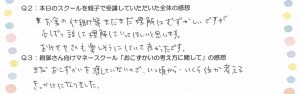 Q2：本日のスクールを親子で受講していただいた全体の感想
お金の仕組みはまだまだ理解にむずかしいですが
少しずつ話して理解していってほしいと思います。
おかせぎもとても楽しそうにしていて良かったです。
Q3：親御さん向けマネースクール「おこづかいの考え方に関して」の感想
まだおこづかいを渡していないので、いつ頃から、いくら位か考える
きっかけになりました。